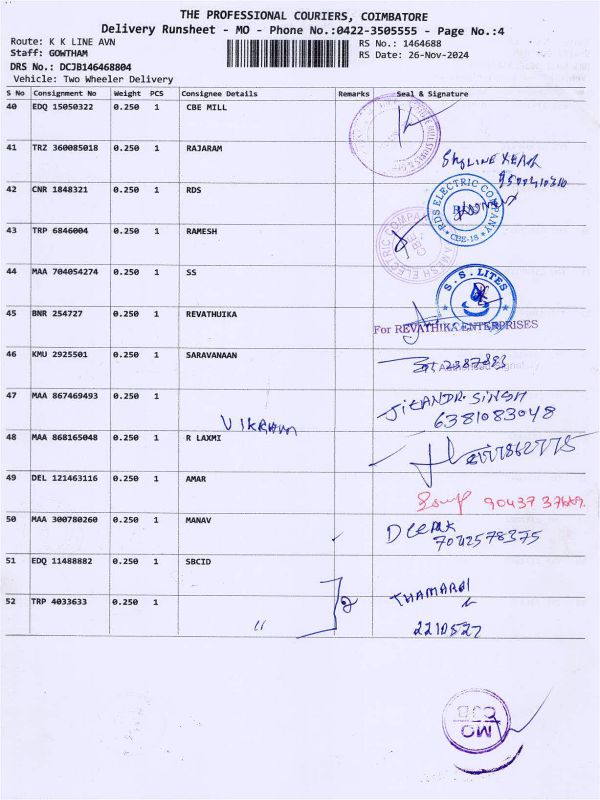 THE PROFESSIONAL COURIERS, COIMBATORE
Delivery Runsheet - MO - Phone No.:0422-3505555 - Page No.:4
Route: K K LINE AVN
RS No.: 1464688
Staff: GOWTHAM
RS Date: 26-Nov-2024
DRS No.: DCJB146468804
Vehicle: Two Wheeler Delivery
S No Consignment No Weight PCS Consignee Details Remarks Seal & Signature
40 EDQ 15050322 0.250 1 CBE MILL
41 TRZ 360085018 0.250 1 RAJARAM
42 CNR 1848321 0.250 1 RDS
RDS ELECTRIC COMPANY
* CBE-18 *
43 TRP 6846004 0.250 1 RAMESH
RAMESH ELECTRIC COMPANY
CBE
44 MAA 704054274 0.250 1 SS
S. S. LITES
45 BNR 254727 0.250 1 REVATHUIKA
For REVATHIKA ENTERPRISES
46 KMU 2925501 0.250 1 SARAVANAAN
47 MAA 867469493 0.250 1
JITANDR. SINGH
6381083048
VIKRAM
48 MAA 868165048 0.250 1 R LAXMI
49 DEL 121463116 0.250 1 AMAR
50 MAA 300780260 0.250 1 MANAV
Deepak
7042578375
51 EDQ 11488882 0.250 1 SBCID
52 TRP 4033633 0.250 1
THAMARAI
2210527
CJB
MO